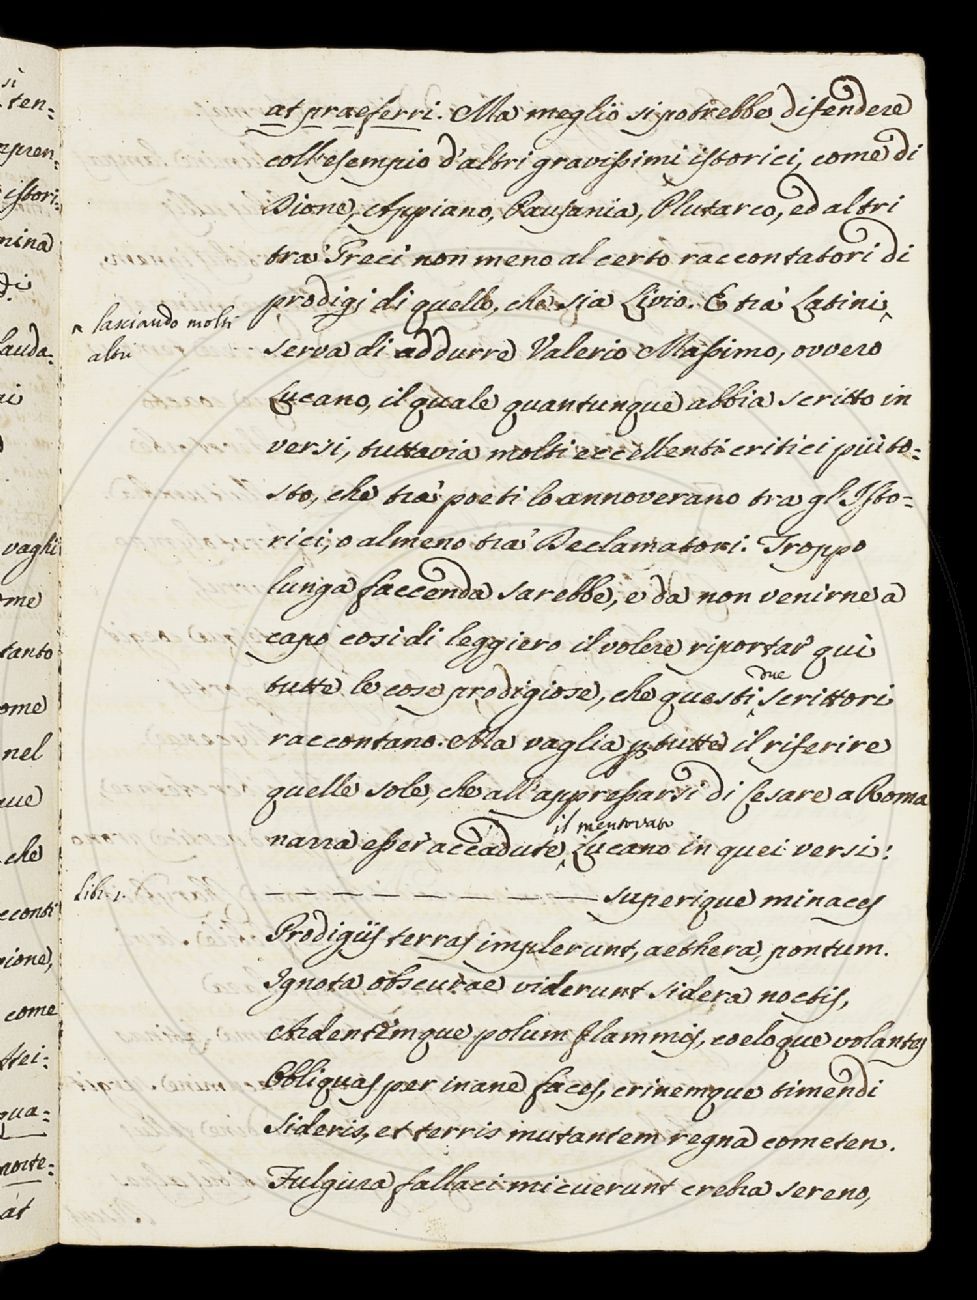 at praeferri. Ma meglio si potrebbe difendere
coll'esempio d'altri gravissimi istorici, come di
Dione, Appiano, Pausania, Plutarco, ed altri
tra' Greci non meno al certo raccontatori di
prodigj di quello, che sia Livio. E tra' Latini ^
^ lasciando molti
altri
serva di addurre Valerio Massimo, ovvero
Lucano, il quale quantunque abbia scritto in
versi, tuttavia molti eccellenti critici piùto=
sto, che tra' poeti lo annoverano tra gl'Isto=
rici, o almeno tra' Declamatori. Troppo
lunga faccenda sarebbe, e da non venirne a
capo così di leggiero il volere riportar quì
tutte le cose prodigiose, che questi ^ due scrittori
raccontano. Ma vaglia p tutte il riferire
quelle sole, che all'appressarsi di Cesare a Roma
narra esser accadute ^ il mentovato Lucano in quei versi:
Lib. 1.
— — — — — — — superique minaces
Prodigiis terras implerunt, aethera, pontum.
Ignota obscurae viderunt sidera noctis,
Ardentemque polum flammis, coeloque volantes
Obliquas per inane faces, crinemque timendi
Sideris, et terris mutantem regna cometen.
Fulgura fallaci micuerunt crebra sereno,
si
ten=
istori=
mina
di
lauda=
vaghi
ome
tanto
ome
nel
que
che
pione,
come
ttei=
qua=
morte=
at